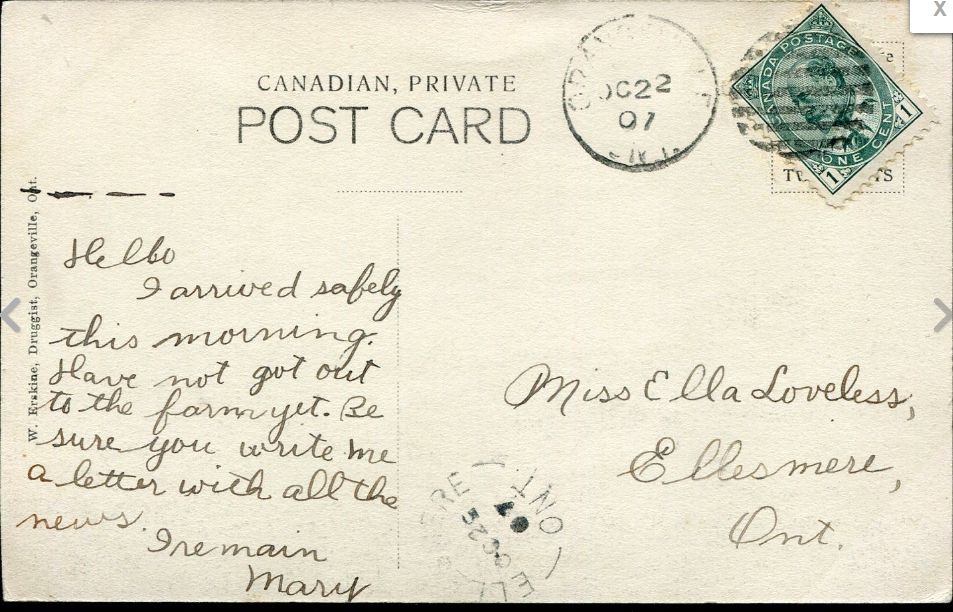 CANADIAN, PRIVATE
POST CARD
OC 22
07
CANADA POSTAGE
ONE CENT
1
1
W. Erskine, Druggist, Orangeville, Ont.
Hello
I arrived safely
this morning.
Have not got out
to the farm yet. Be
sure you write me
a letter with all the
news.
I remain
Mary
Miss Ella Loveless,
Ellesmere,
Ont.
ONT
OC 22
07
X